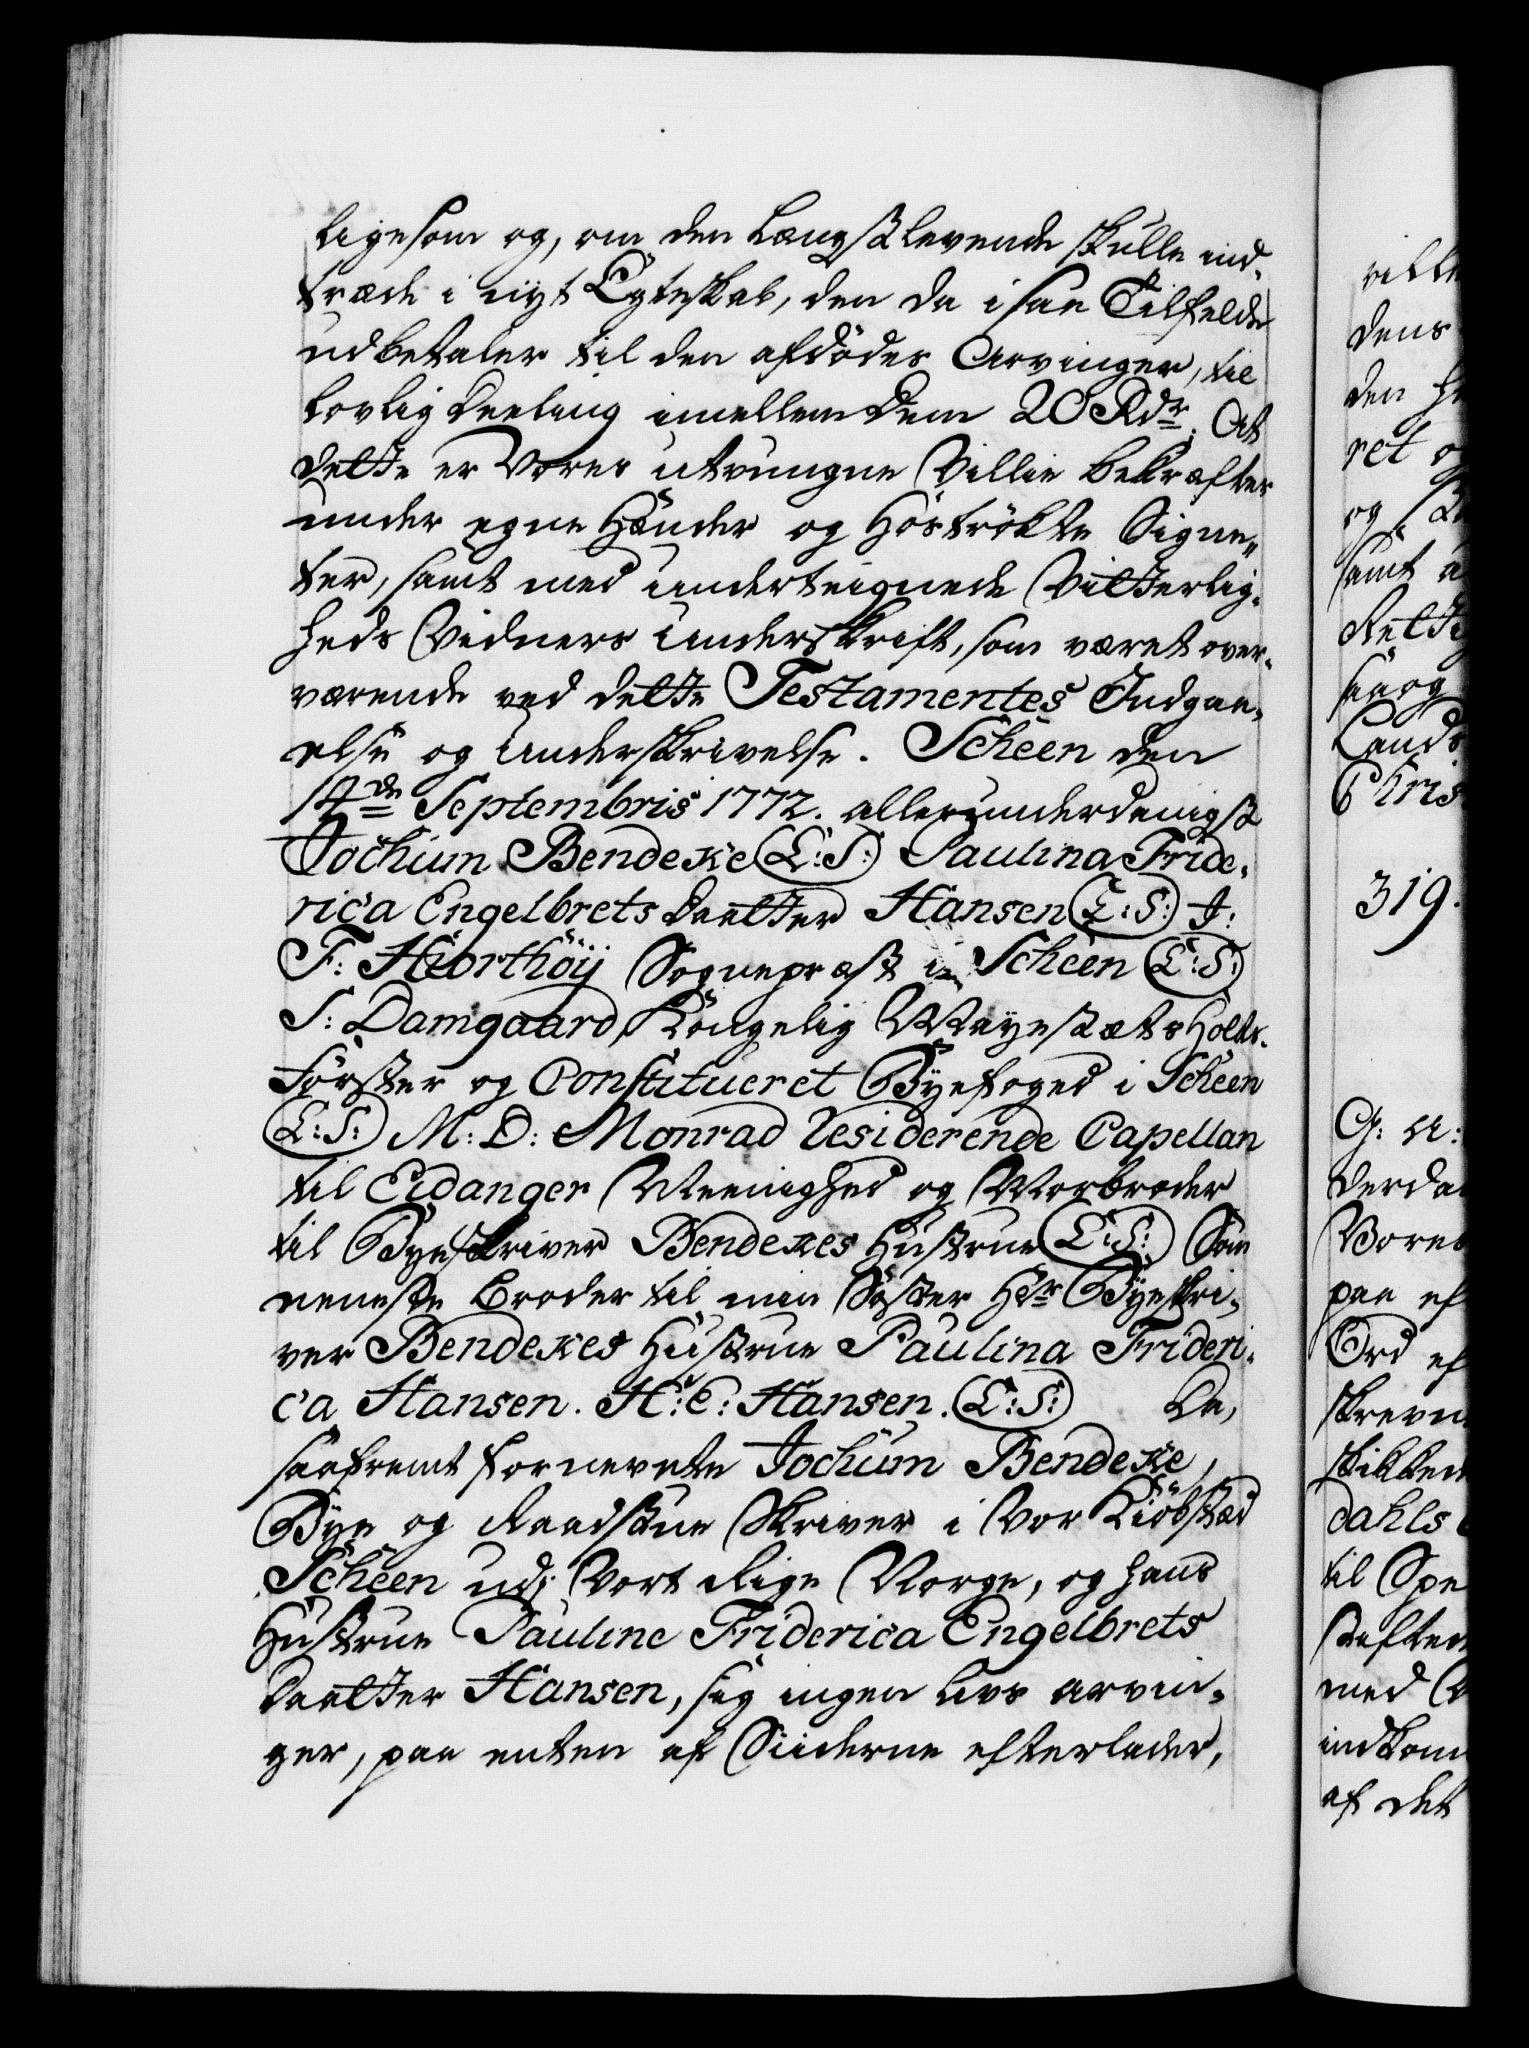 ligesom og, om den Længstlevende skulle ind-
træde i nyt Egteskab, den da i saa Tilfelde
udbetaler til den afdødes Arvinger, til
lovlig Deeling imellem dem 20 Rdr. At
dette er Vores utvungne Villie bekræftes
under egne Hænder og hoströkte Signe„
ter, samt med underteignede Vitterlig-
heds Vidners Underskrift, som været over-
værende ved dette Testamentes Indgaa-
else og Underskrivelse. Scheen den
14de Septembris 1772. allerunderdanigst
Jochum Bendeke (L:S:) Paulina Fride-
rica Engelbrets Daatter Hansen (L:S:) J:
F: Hiorthöy Sognepræst i Scheen (L:S:)
S: Damgaard, Kongelig Mayestæts Holtz-
Förster og Constitueret Byefoged i Scheen
(L:S:) M: D: Monrad Residerende Capellan
til Eidanger Meenighed og Morbroder
til Byeskriver Bendekes Hustrue (L:S:) Som
eeneste Broder til min Söster Hr Byeskri-
ver Bendekes Hustrue Paulina Frideri-
ca Hansen. H: C: Hansen. (L:S:) Da,
saafremt fornevnte Jochum Bendeke,
Bye og Raadstue Skriver i Vor Kiöbstæd
Scheen udi Vort Rige Norge, og hans
Hustrue Pauline Friderica Engelbrets
Daatter Hansen, sig ingen Livs arvin-
ger, paa enten af Siiderne efterlader,
dens
ret
samt
Cands
Chris
319.
G: A:
Ord
skrevn
dahls
til Spe
med
indkom
af det